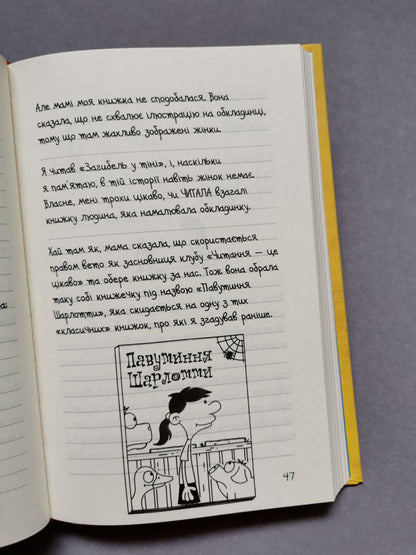 Але мамі моя книжка не сподобалася. Вона
сказала, що не схвалює ілюстрацію на обкладинці,
тому що там жахливо зображені жінки.
Я читав «Загибель у тіні», і, наскільки
я пам'ятаю, в тій історії навіть жінок немає.
Власне, мені трохи цікаво, чи ЧИТАЛА взагалі
книжку людина, яка намалювала обкладинку.
Хай там як, мама сказала, що скористається
правом вето як засновниця клубу «Читання — це
цікаво» та обере книжку за нас. Тож вона обрала
таку собі книжечку під назвою «Павутиння
Шарлотти», яка скидається на одну з тих
«класичних» книжок, про які я згадував раніше.
Павутиння
Шарлотти
47
а: